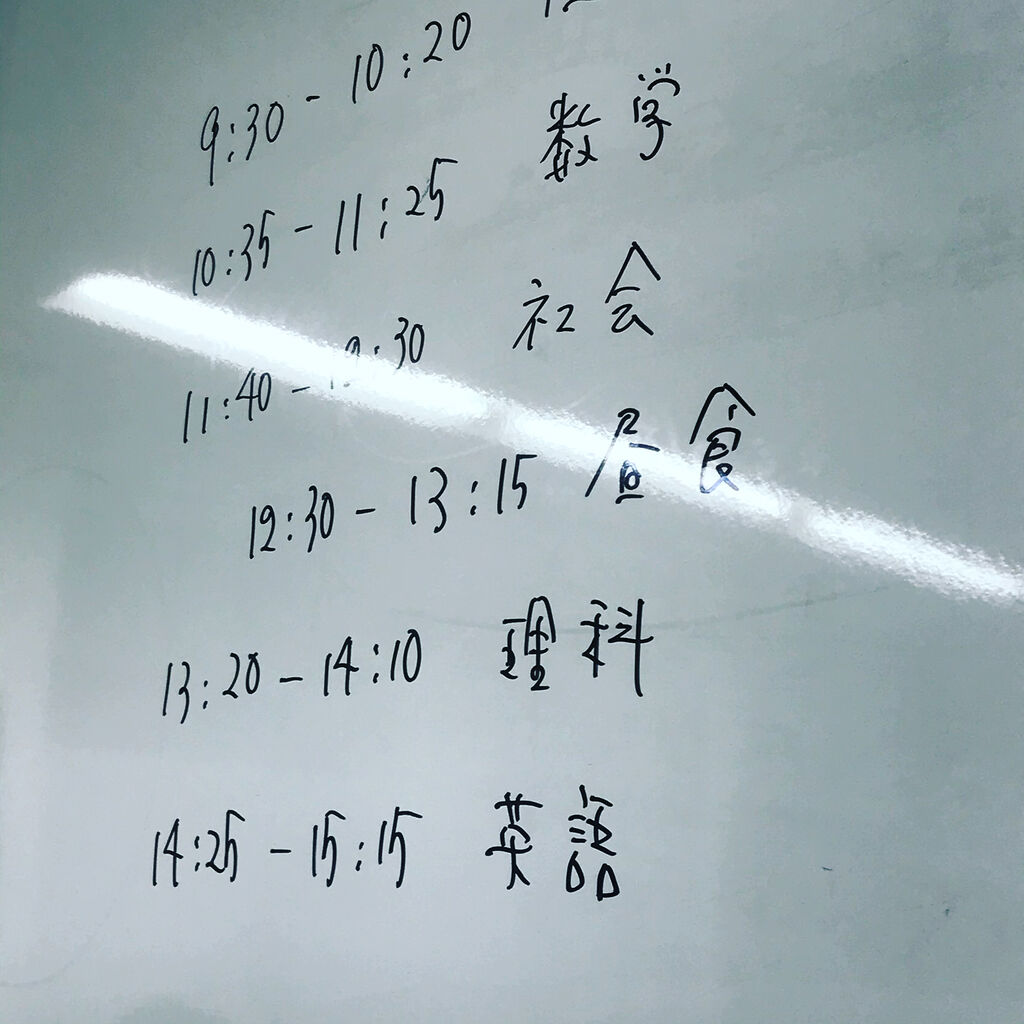 9:30 - 10:20
10:35 - 11:25 数学
11:40 - 12:30 社会
12:30 - 13:15 昼食
13:20 - 14:10 理科
14:25 - 15:15 英語